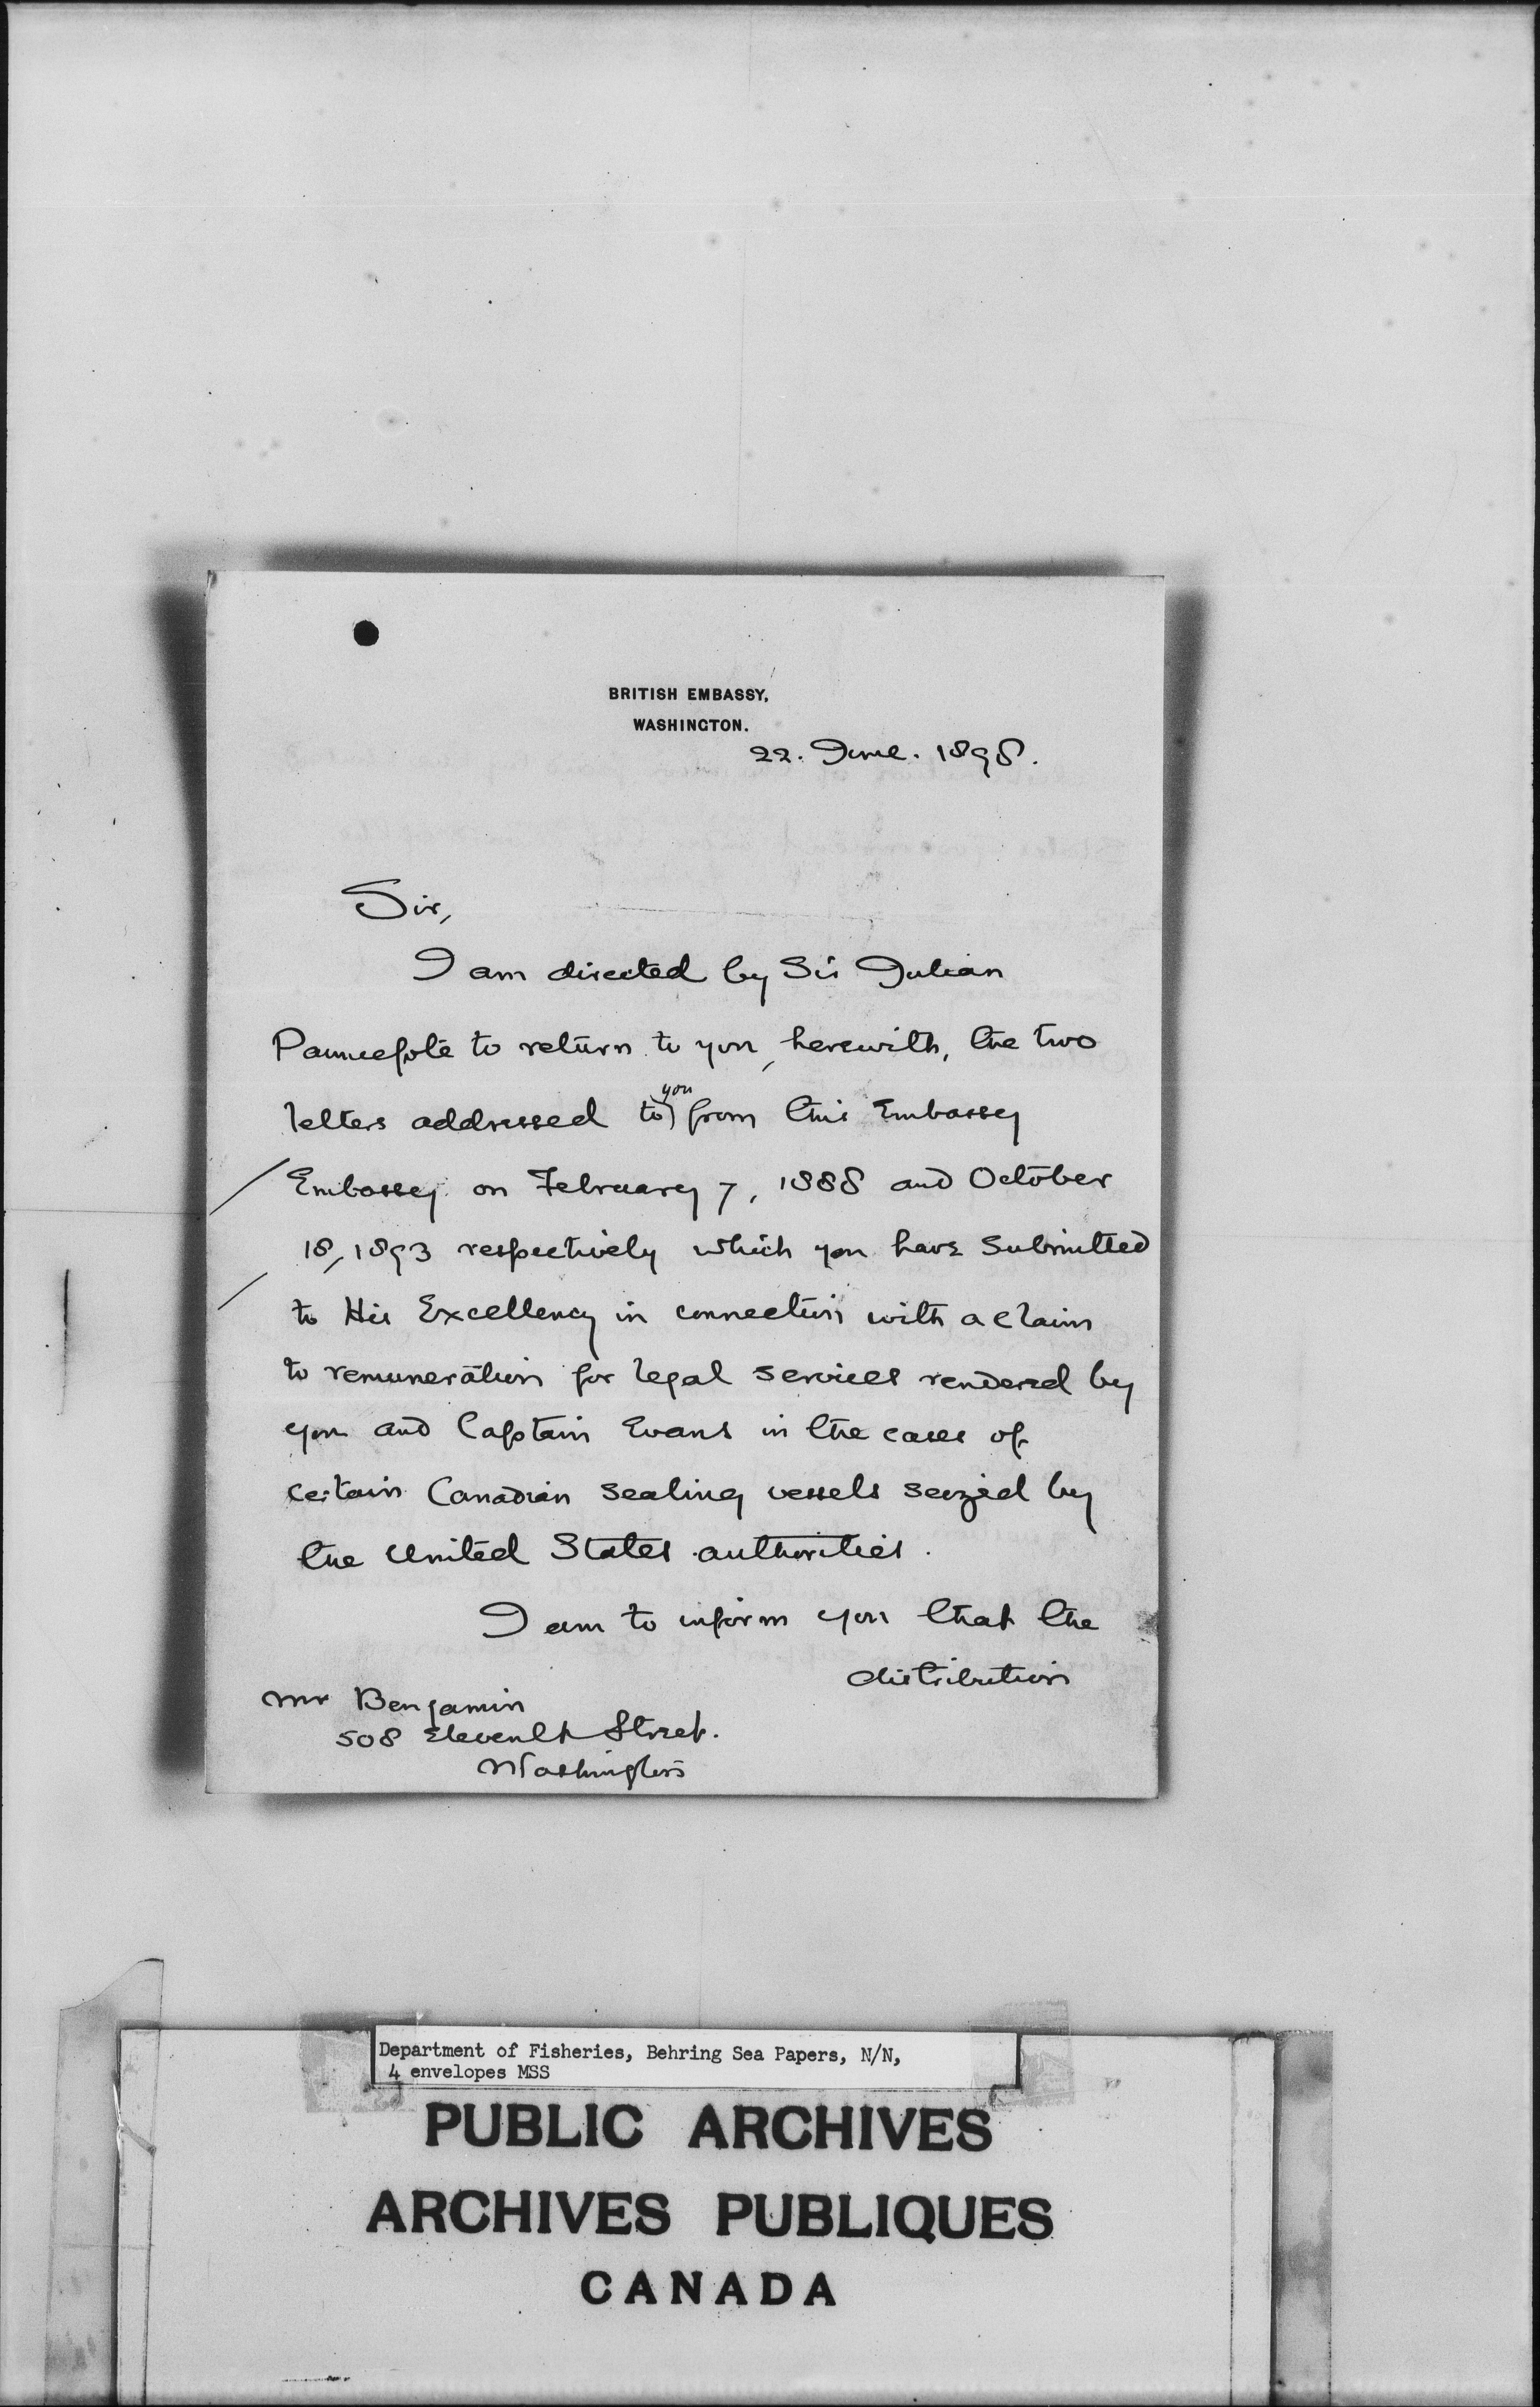 BRITISH EMBASSY,
WASHINGTON.
22. June. 1898.
Sir,
I am directed by Sir Julian
Pauncefote to return to you, herewith, the two
letters addressed to you from this Embassy
Embassy on February 7, 1888 and October
18, 1893 respectively which you have submitted
to His Excellency in connection with a claim
to remuneration for legal services rendered by
you and Captain Evans in the cases of
certain Canadian sealing vessels seized by
the United States authorities.
I am to inform you that the
distribution
Mr Benjamin
508 Eleventh Street.
Washington
Department of Fisheries, Behring Sea Papers, N/N,
4 envelopes MSS
PUBLIC ARCHIVES
ARCHIVES PUBLIQUES
CANADA